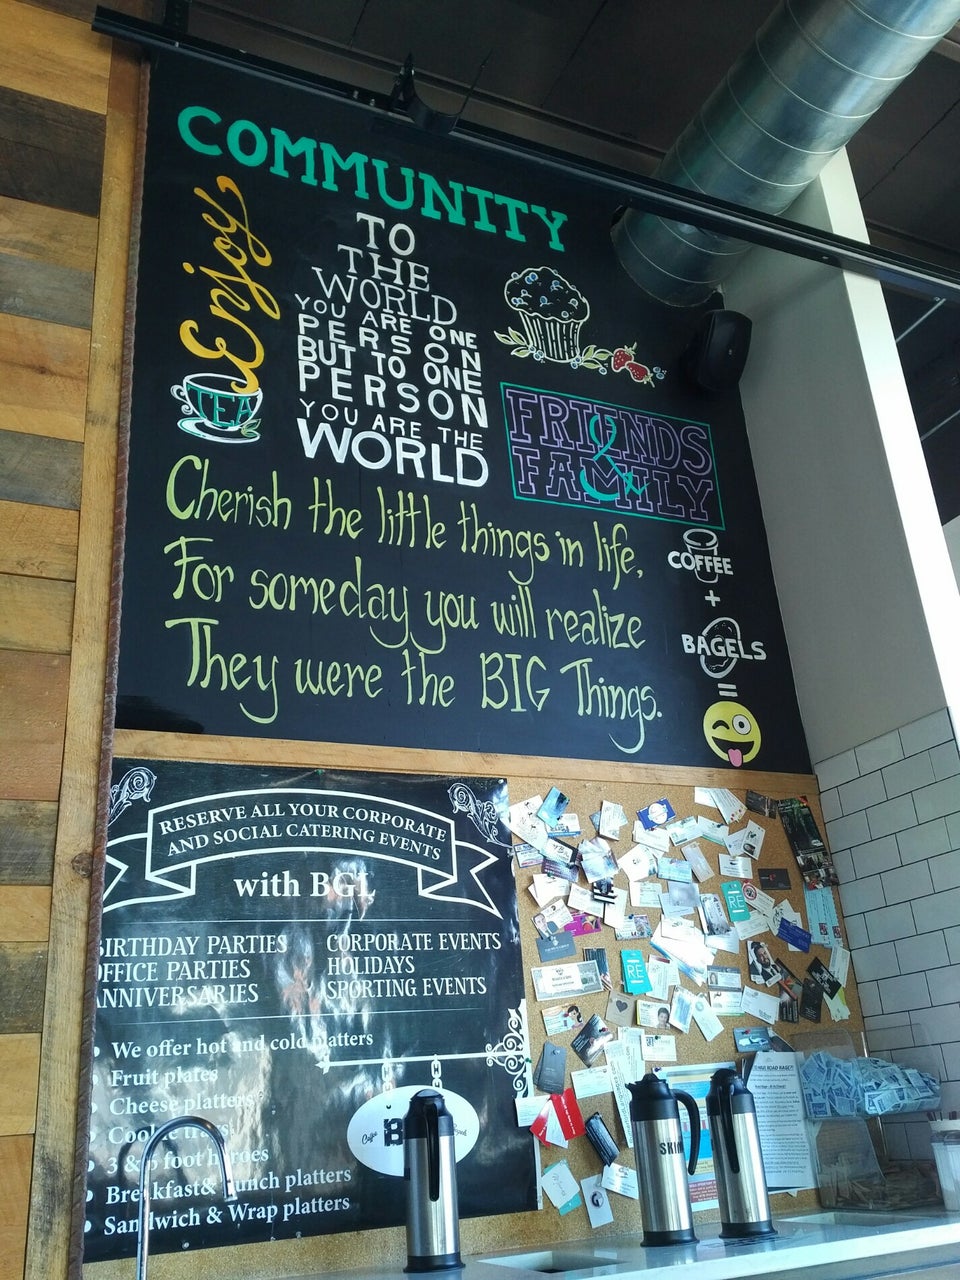 COMMUNITY
Enjoy
TEA
TO
THE
WORLD
YOU ARE ONE
PERSON
BUT TO ONE
PERSON
YOU ARE THE
WORLD
FRIENDS
&
FAMILY
Cherish the little things in life,
For someday you will realize
They were the BIG Things.
COFFEE
+
BAGELS
=
RESERVE ALL YOUR CORPORATE
AND SOCIAL CATERING EVENTS
with BGL
BIRTHDAY PARTIES
OFFICE PARTIES
ANNIVERSARIES
CORPORATE EVENTS
HOLIDAYS
SPORTING EVENTS
• We offer hot and cold platters
• Fruit plates
• Cheese platters
• Cookie trays
• 3 & 6 foot heroes
• Breakfast& Lunch platters
• Sandwich & Wrap platters
RE
RE
SKIM